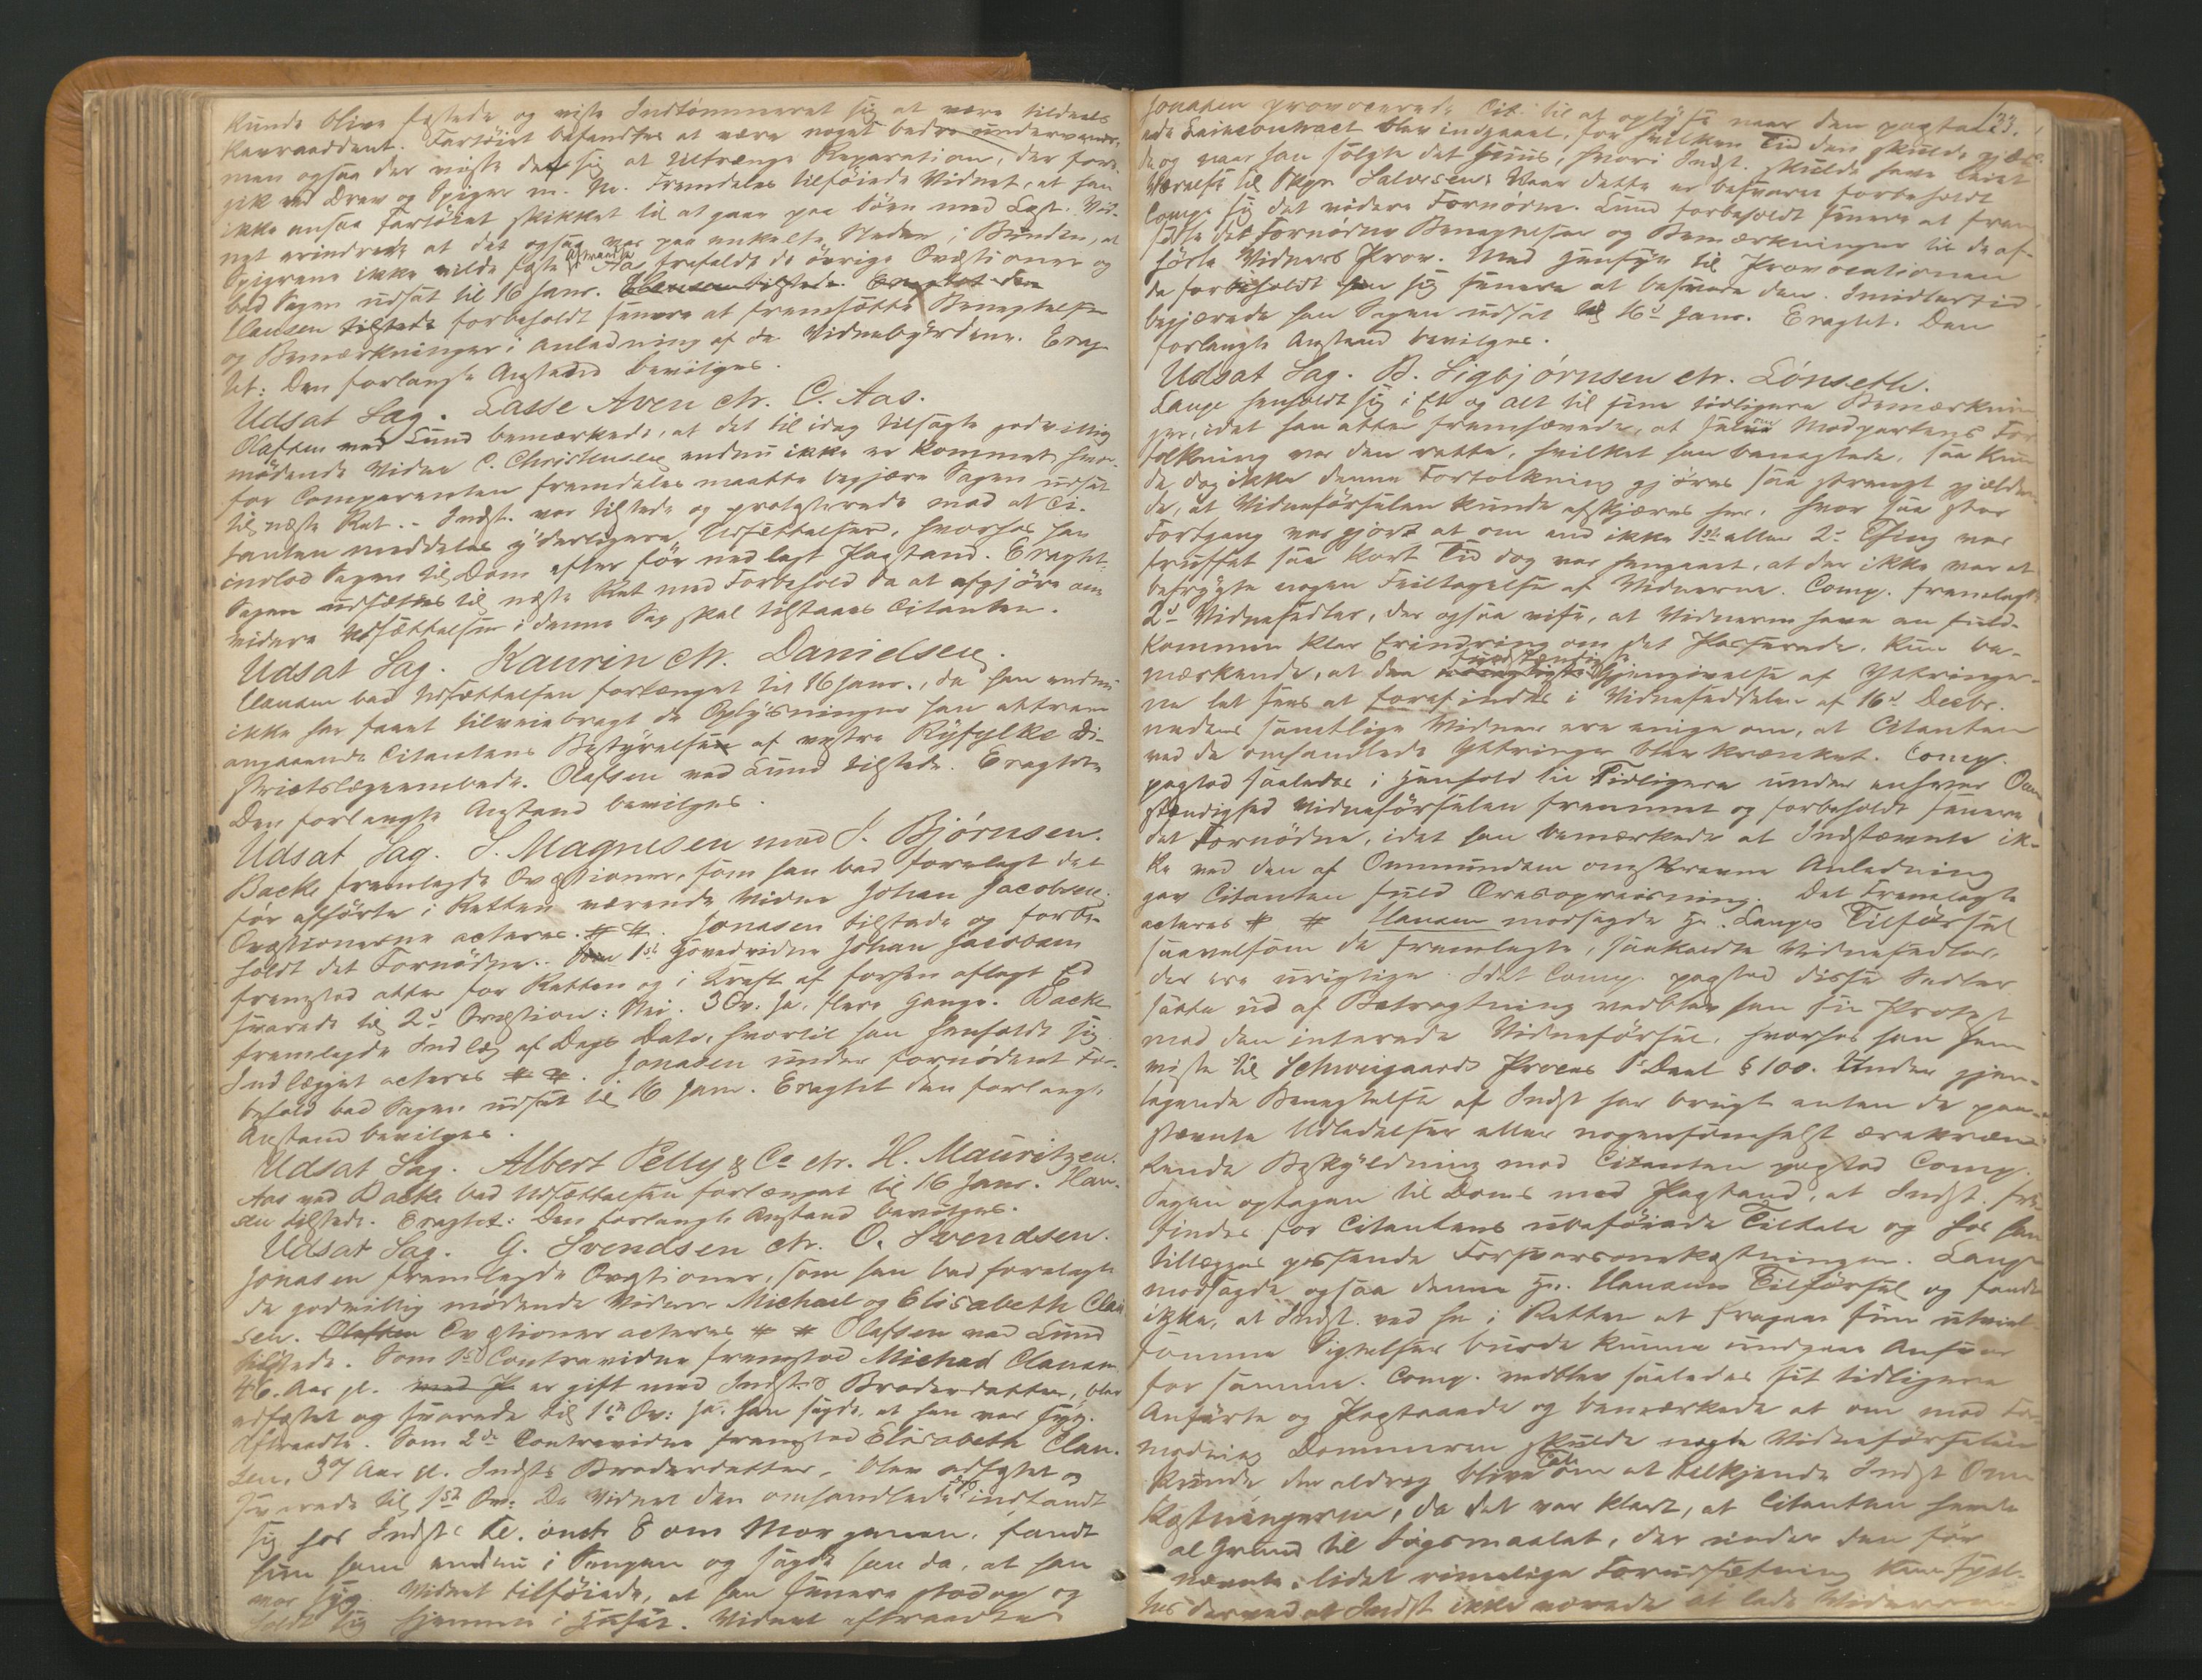 kunde blive fæstede og viste Indtømmeret sig at være tildeels
Fartøiet befandtes at være noget
men ogsaa der viste det sig at tiltrænge Reparation, der fore-
gik med Drev og Spiger m. M. Fremdeles tilføiede Vidnet, at han
ikke ansaa Fartøiet skikket til at gaae paa Søen med Last. Vid-
net erindrede at det ogsaa var paa enkelte Steder i Bunden, at
Spigrene ikke vilde fæste. Aftraadte. Aas frafaldt de øvrige Qvæstioner og
bad Sagen udsat til 16 Janr.
Clausen tilstede forbeholdt senere at fremsætte Benegtelser
og Bemærkninger i Anledning af de Vidnebyrdene. Erag-
tet: Den forlangte Anstand bevilges.
Udsat Sag. Lasse Aven ctr. C. Aas.
Olafsen ved Lund bemærkede, at det til idag tilsagte godvillig
mødende Vidne C. Christensen endnu ikke er kommet, hvor-
for Comparenten fremdeles maatte begjære Sagen udsat
til næste Ret. - Indst. var tilstede og protesterede mod at Ci-
tanten meddeles yderligere Udsættelser, hvorhos han
indlod Sagen til Dom efter før nedlagt Paastand. Eragtet
Sagen udsættes til næste Ret med Forbehold da at afgjøre om
videre Udsættelser i denne Sag skal tilstaaes Citanten.
Udsat Sag. Kaurin ctr. Danielsen.
Clausen bad Udsættelsen forlænget til 16 Janr., da han endnu
ikke har faaet tilveiebragt de Oplysninger han attraar
angaaende Citantens Bestyrelse af vestre Ryfylke Di-
strictslægeembede. Olafsen ved Lund tilstede. Eragtet
Den forlangte Anstand bevilges.
Udsat Sag. S. Magnesen mod J. Bjørnsen.
Backe fremlagde Qvæstioner, som han bad forelagt det
før afhørte i Retten værende Vidne Johan Jacobsen.
Qvæstionerne acteres # #. Jonasen tilstede og forbe-
holdt det Fornødne. 1ste Hovedvidne Johan Jacobsen
fremstod atter for Retten og i Kraft af forhen aflagt Ed
svarede til 2d Qvæstion: Nei. 3 Qv. Ja, flere Gange. Backe
fremlagde Indlæg af Dags Dato, hvortil han henholdt sig
Indlægget acteres # #. Jonasen under fornødent For-
behold bad Sagen udsat til 16 Janr. Eragtet den forlangte
Anstand bevilges.
Udsat Sag. Albert Pelly & Co ctr. H. Mauritzen.
Aas ved Backe bad Udsættelsen forlænget til 16 Janr. Han-
sen tilstede. Eragtet: Den forlangte Anstand bevilges.
Udsat Sag. G. Svendsen ctr. O. Svendsen.
Jonasen fremlagde Qvæstioner, som han bad forelagte
de godvillig mødende Vidner Michael og Elisabeth Clau
sen. Olafsen Qvæstioner acteres # # Olafsen ved Lund
tilstede. Som 1ste Contravidne fremstod Michael Clausen
46 Aar gl. er gift med Indst.s Broderdatter, blev
edfæstet og svarede til 1ste Qv: Ja. han sagde, at han var syg.
Aftraadte. Som 2de Contravidne fremstod Elisabeth Clau-
sen, 37 Aar gl. Indsts Broderdatter, blev edfæstet og
svarede til 1ste Qv: Da Vidnet den omhandlede indfandt
sig hos Indst: Kl. omtr. 8 om Morgenen, fandt
hun ham endnu i Sengen og sagde han da, at han
var syg. Vidnet tilføiede, at han senere stod op og
holdt sig hjemme i Huset. Vidnet aftraadte
Jonasen provocerede Cit. til at oplyse naar den paastaa-
123.
ede Leiecontract blev indgaaet, for hvilken Tid den skulde gjæl-
de og naar han solgte det Huus, hvori Indst. skulde have leiet
Værelse til Skpr Salvesen. Naar dette er besvaret forbeholdt
Comp. sig det videre Fornødne. Lund forbeholdt senere at frem
sætte de fornødne Benegtelser og Bemærkninger til de af-
hørte Vidners Prov. Med Hensyn til Provocationen
da forbeholdt han sig senere at besvare den. Imidlertid
begjærede han Sagen udsat til 16d Janr. Eragtet. Den
forlangte Anstand bevilges.
Udsat Sag. B. Sigbjørnsen ctr. Lønseth.
Lange henholdt sig i Et og Alt til sine tidligere Bemærknin
ger, idet han atter fremhævede, at selv om Modpartens For
tolkning var den rette, hvilket han benegtede, saa kun
de dog ikke denne Fortolkning gjøres saa strengt gjælden
de, at Vidneførselen kunde afskjæres her, hvor saa stor
Fortgang var gjort at om end ikke 1ste eller 2d Thing var
truffet saa kort Tid dog var hengaaet, at der ikke var at
befrygte nogen Feiltagelse af Vidnerne. Comp. fremlagte
2d Vidnesedler, der ogsaa vise, at Vidnerne have en fuld-
kommen klar Erindring om det Passerede. Kun be-
mærkende, at den fuldstændigste Gjengivelse af Yttringer-
ne lat sees at forefindes i Vidneseddelen af 16d Decbr.
medens samtlige Vidner ere enige om, at Citanten
ved de omhandlede Yttringer blev krænket. Comp.
paastod saaledes i Henhold til Tidligere under enhver Om
stændighed Vidneførselen fremmet og forbeholdt senere
det Fornødne, idet han bemærkede at Indstævnte ik-
ke ved den af Ommundsen omskrevne Anledning
gav Citanten fuld Æresopreisning. Det Fremlagte
acteres # # Clausen modsagde Hr. Langes Tilførsel
saavelsom de fremlagte, saakaldte Vidnesedler,
der ere urigtige. Idet Comp. paastod disse Sedler
satte ud af Betragtning vedblev han sin Protest
mod den intenderede Vidneførsel, hvorhos han hen
viste til Schweigaards Proces 1ste Deel § 100. Under gjen-
tagende Benegtelse af Indst har brugt enten de paa-
stævnte Udladelser eller nogensomhelst ærekræn
kende Beskyldning mod Citanten paastod Comp.
Sagen optagen til Doms med Paastand, at Indst. fri
findes for Citantens ubeføiede Tiltale og hos ham
tillægges passende Forsvarsomkostninger. Lange
modsagde ogsaa denne Hr. Clausens Tilførsel og fandt
ikke, at Indst. ved her i Retten at fragaae sine
Sigtelser burde kunne undgaae Ansvar
for samme. Comp. vedblev saaledes sit tidligere
Anførte og Paastaaede og bemærkede at om mod For
modning Dommeren skulde nægte Vidneførselen
kunde der aldrig blive Tale om at tilkjende Indst Om
kostningerne, da det var klart, at Citanten havde
al Grund til Søgsmaalet, der under den før
nævnte, lidet rimelige Forudsætning kun
derved at Indst ikke at lade Vidnerne